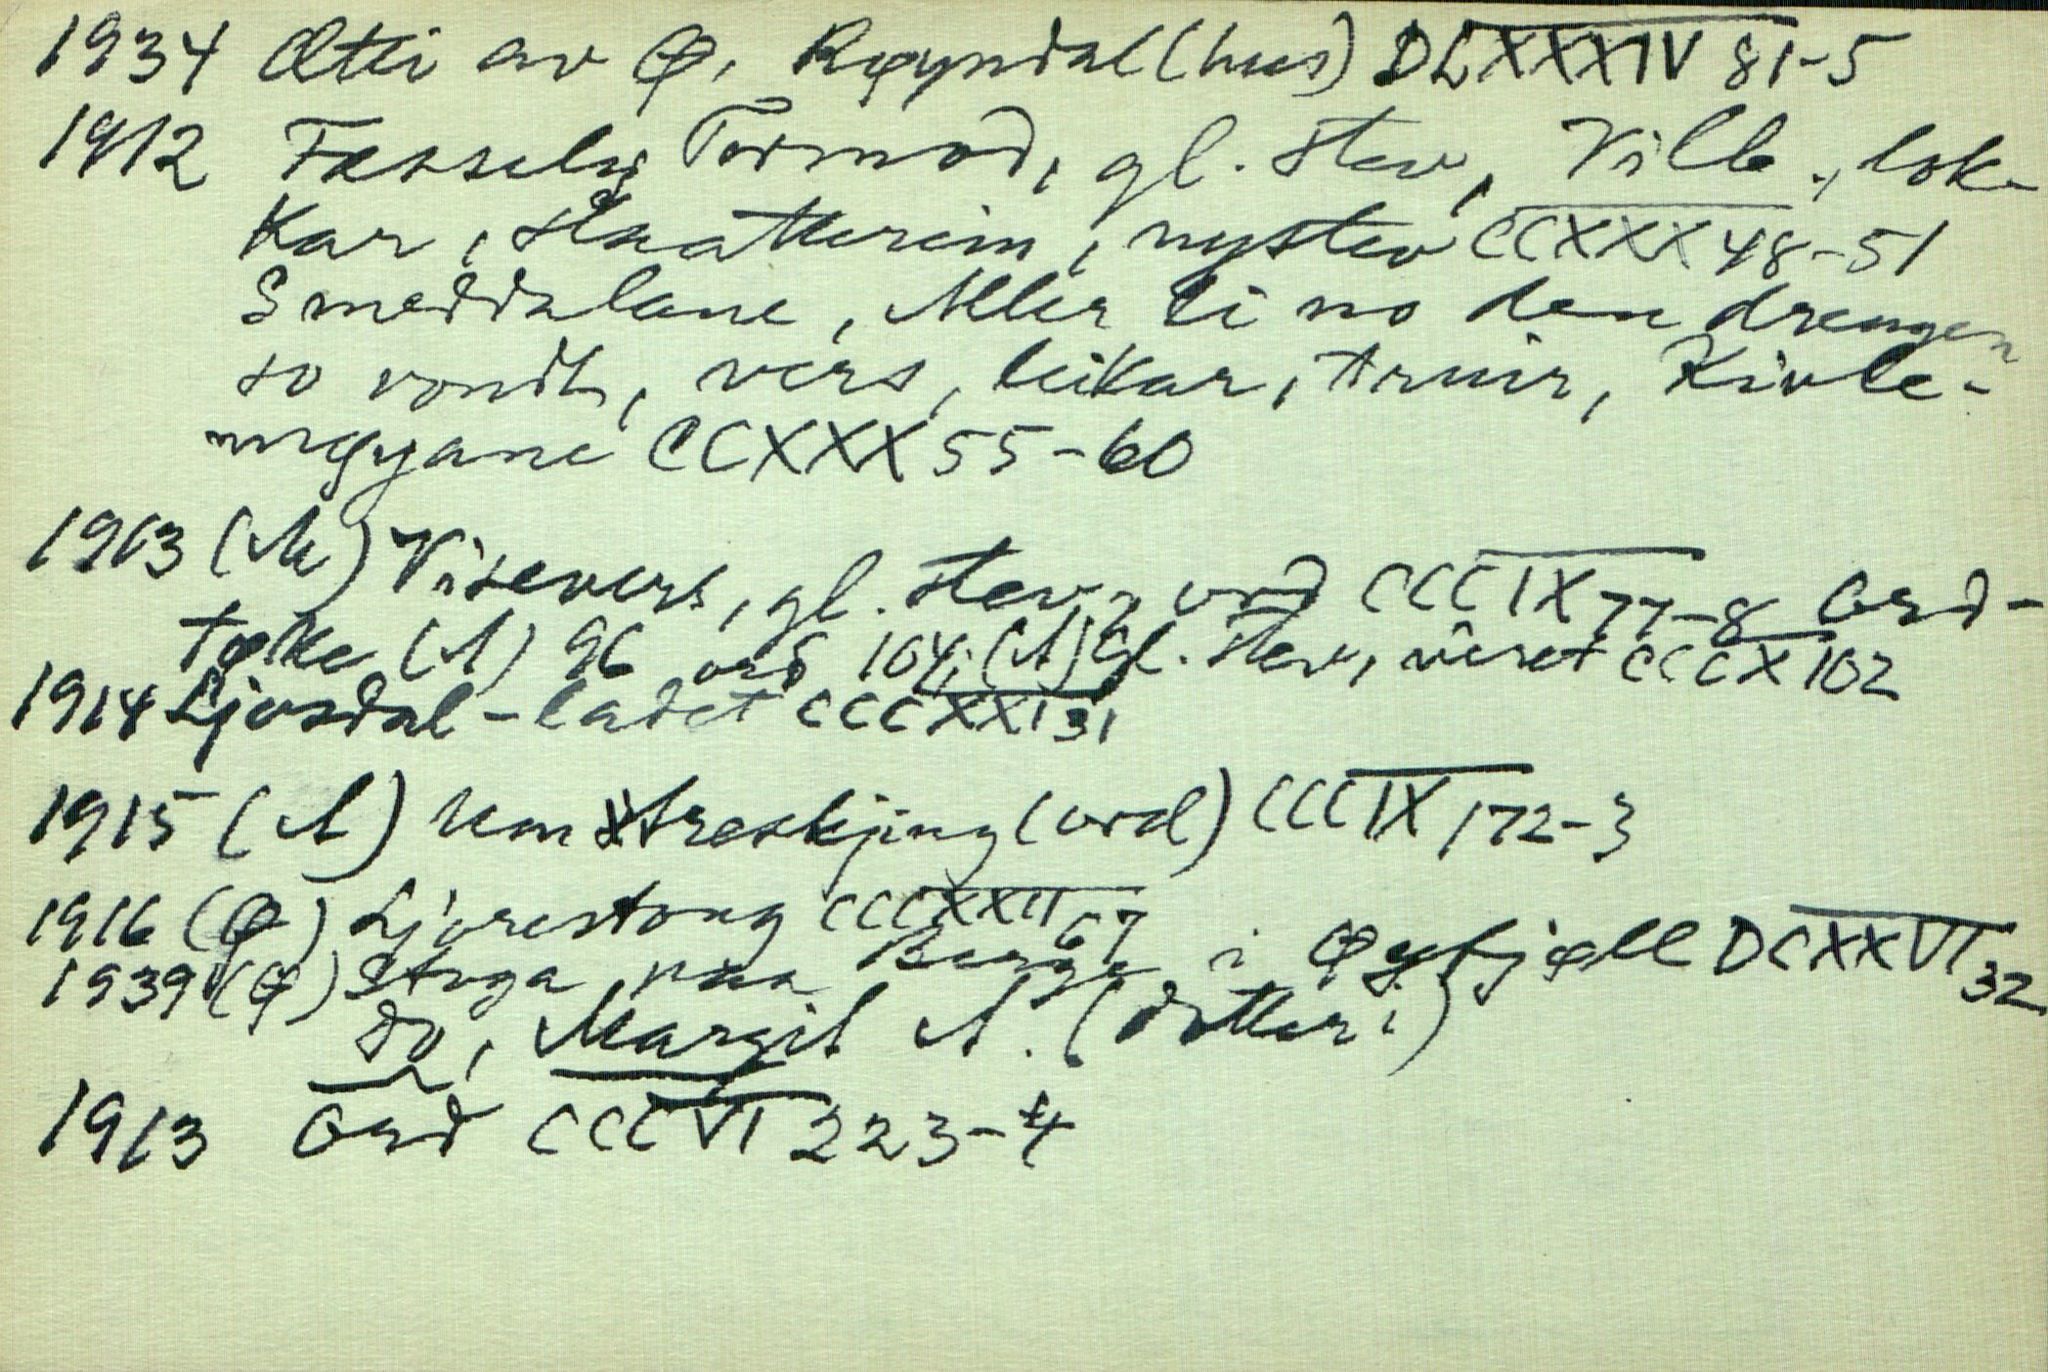 1934 Ætti av Ø. Røyndal (hus) DLXXXIV 81-5
1912 Tormod, gl. stev, Ville., lok-
kar, slaatterim, nystev CCXXX 48-51
Smeddalane, Aller ti no den drengen
so vondt, vers, leikar, Armir, Kivle-
møyane CCXXX 55-60
1913 (M) Visevers, gl. stev, ord CCCIX 77-8 Ord-
tøke (A) 96 ord 104; (A) Gl. stev, veret CCCX 102
1914 Ljosdal-ladet CCCXXI 31
1915 (A) Um treskjing (ord) CCCIX 172-3
1916 (Ø) Ljorestong CCCXXII 67
1939 (Ø) Stoga paa Berge i Øyfjøll DCXXVI 32
do, Margit A. (dotter i)
1913 Ord CCCVI 223-4